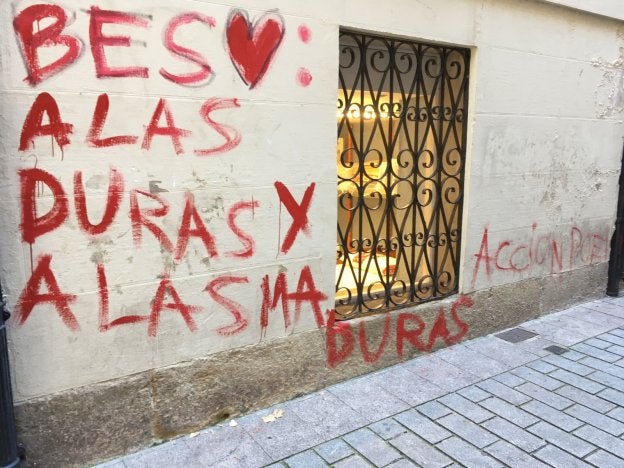 BESO:
ALAS
DURAS Y
A LAS MA
DURAS
ACCION POE